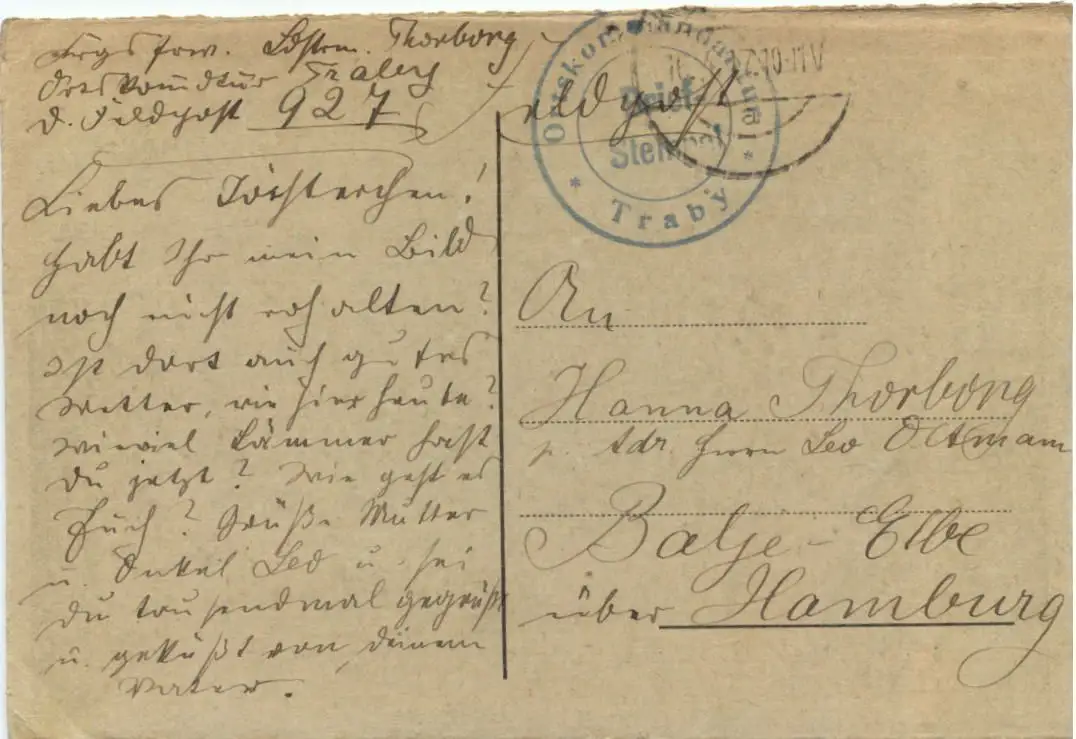 Ldstrm. Thorborg
Ortskomdtur Traby
d. Feldpost 927
Feldpost
Ortskommandantur
Brief
Stempel
* Traby *
Liebes Töchterchen!
habt Ihr mein Bild
noch nicht erhalten?
Ist dort auch gutes
Wetter, wie hier heute?
Wieviel Lämmer hast
Du jetzt? Wie geht es
Euch? Grüße Mutter
u. Onkel Leo u. sei
Du tausendmal gegrüßt
u. geküßt von deinem
Vater.
An
Hanna Thorborg
p. Adr. Herrn Leo Oltmann
Balje - Elbe
über Hamburg